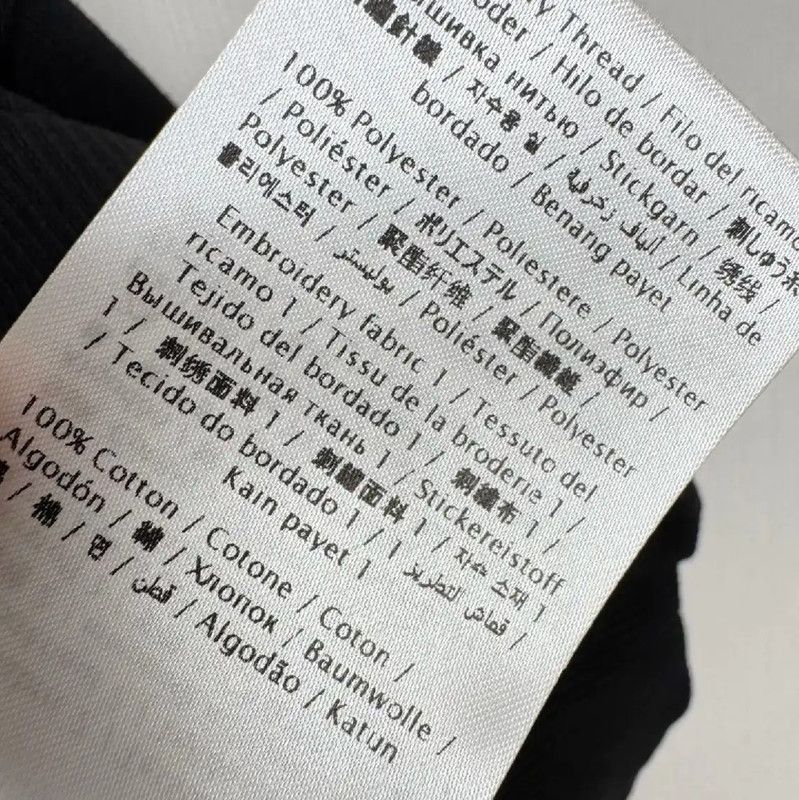 Thread / Filo del ricamo
/ Hilo de bordar / 刺しゅう糸
нитью / Stickgarn / 绣线 /
/ 자수용 실 / ألياف زخرفية / Linha de
bordado / Benang payet
100% Polyester / Poliestere / Polyester
/ Poliéster / ポリエステル / Полиэфир /
Polyester / 聚酯纤维 / 聚酯纖維 /
폴리에스터 / بوليستر / Poliéster / Polyester
Embroidery fabric 1 / Tessuto del
ricamo 1 / Tissu de la broderie 1 /
Tejido del bordado 1 / 刺繍布 1 /
Вышивальная ткань 1 / Stickereistoff
1 / 刺绣面料 1 / 刺繡面料 1 / 자수 소재 1
/ Tecido do bordado 1 / قماش التطريز 1 /
Kain payet 1
100% Cotton / Cotone / Coton /
Algodón / 綿 / Хлопок / Baumwolle /
/ 棉 / 면 / قطن / Algodão / Katun